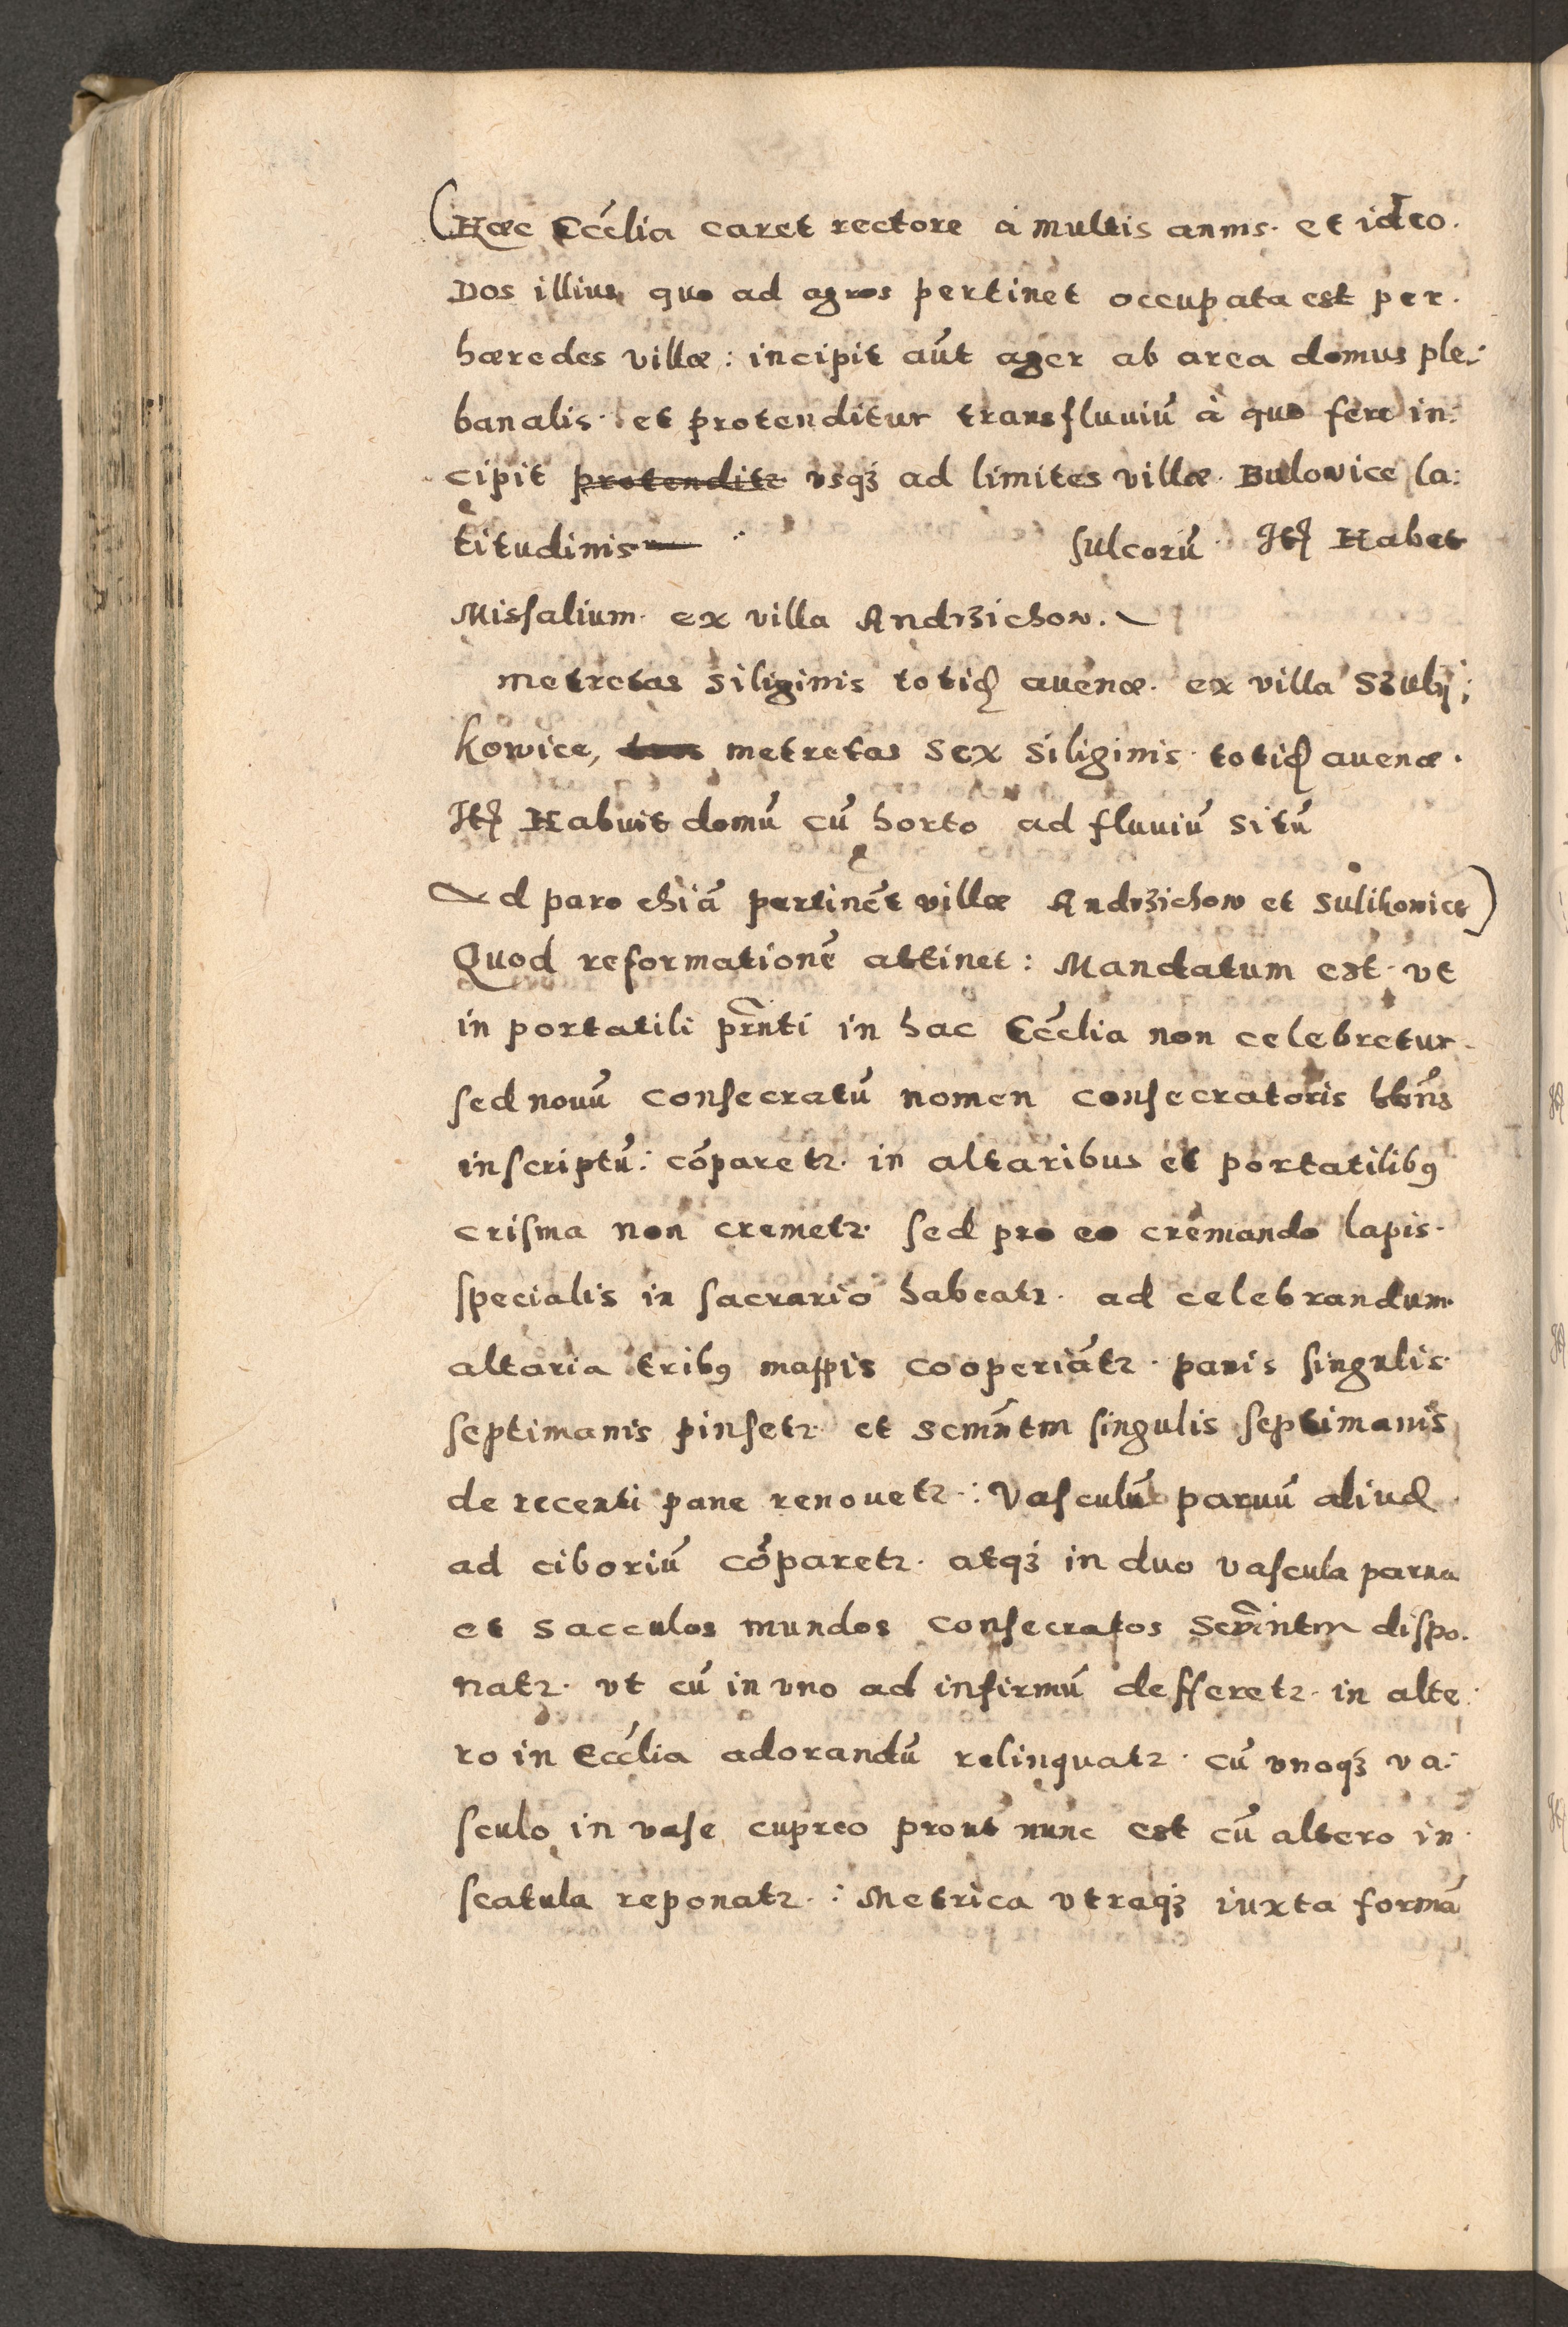 (Hæc Eccĺia caret rectore à multis annis. et ideo.
Dos illius quo ad agros pertinet occupata est per.
hæredes villæ: incipit aut̄ ager ab area domus ple:
banalis. et protenditur trans fluuiū à quo fere in:
cipit protenditꝛ vsqꝫ ad limites villæ. Bulovice la:
titudinis sulcorū. Itꝫ Habet
Missalium. ex villa Andrzichow.
metretas siliginis totiđ avenæ. ex villa Szulij:
kowice, metretas sex siliginis. totiđ avenæ.
Itꝫ Habuit domū cū horto ad fluuiū sitū
Ad parochiā pertinēt villæ Andrzichow et Sulikowice)
Quod reformationē attinet: Mandatum est. vt
in portatili pr̄nti in hac Eccĺia non celebretur.
sed nouū consecratū nomen consecratoris hn̄s
inscriptū: cōparetꝛ. in altaribus et portatilibꝰ
crisma non cremetꝛ. sed pro eo cremando lapis.
specialis in sacrario habeatꝛ. ad celebrandum.
altaria tribꝰ mappis cooperiātꝛ. panis singulis.
septimanis pinsetꝛ. et scmn̄tm singulis septimanis
de recenti pane renouetꝛ.: Vasculū paruū aliuđ
ad ciboriū cōparetꝛ. atqꝫ in duo vascula parua
et sacculos mundos consecratos scrāmntm dispo.
natꝛ. vt cū in vno ad infirmū defferetꝛ. in alte:
ro in Eccĺia adorandū relinquatꝛ. cū vnoqꝫ va:
sculo in vase cupreo prout nunc est cū altero in.
scatula reponatꝛ.: Metrica vtraqꝫ iuxta formā